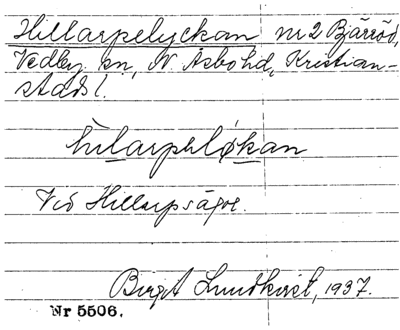 Hillarpelyckan nr 2 Bjärröd,
Vedby sn, N. Åsbo hd, Kristian-
stads l.
hìlarpəløkan
Vid Hillarpsågor.
Birgit Lundkvist, 1937.
Nr 5506.